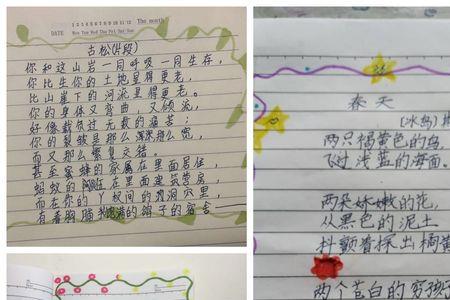 1 2 3 4 5 6 7 8 9 10 11 12 The month
DATE Mon Tue Wed Thu Fri Sat Sun
古松(片段)
你和这山岩一同呼吸一同生存,
你比生你的土地显得更老,
比山崖下的河流显得更老。
你的身体又弯曲,又倾斜,
好像载负过无数的痛苦;
你的裂皱是那么深,那么宽,
而又那么繁复交错,
甚至蜜蜂的家属在里面居住,
蚂蚁的在里面建筑营房,
而在你的丫杈间的洞穴里,
有着胸脯饱满的鸽子的宿舍——
春天
(冰岛)
两只褐黄色的鸟,
飞过浅蓝的海面。
两朵娇嫩的花,
从黑色的泥土
抖颤着探出橘黄
两个苍白的穷孩子